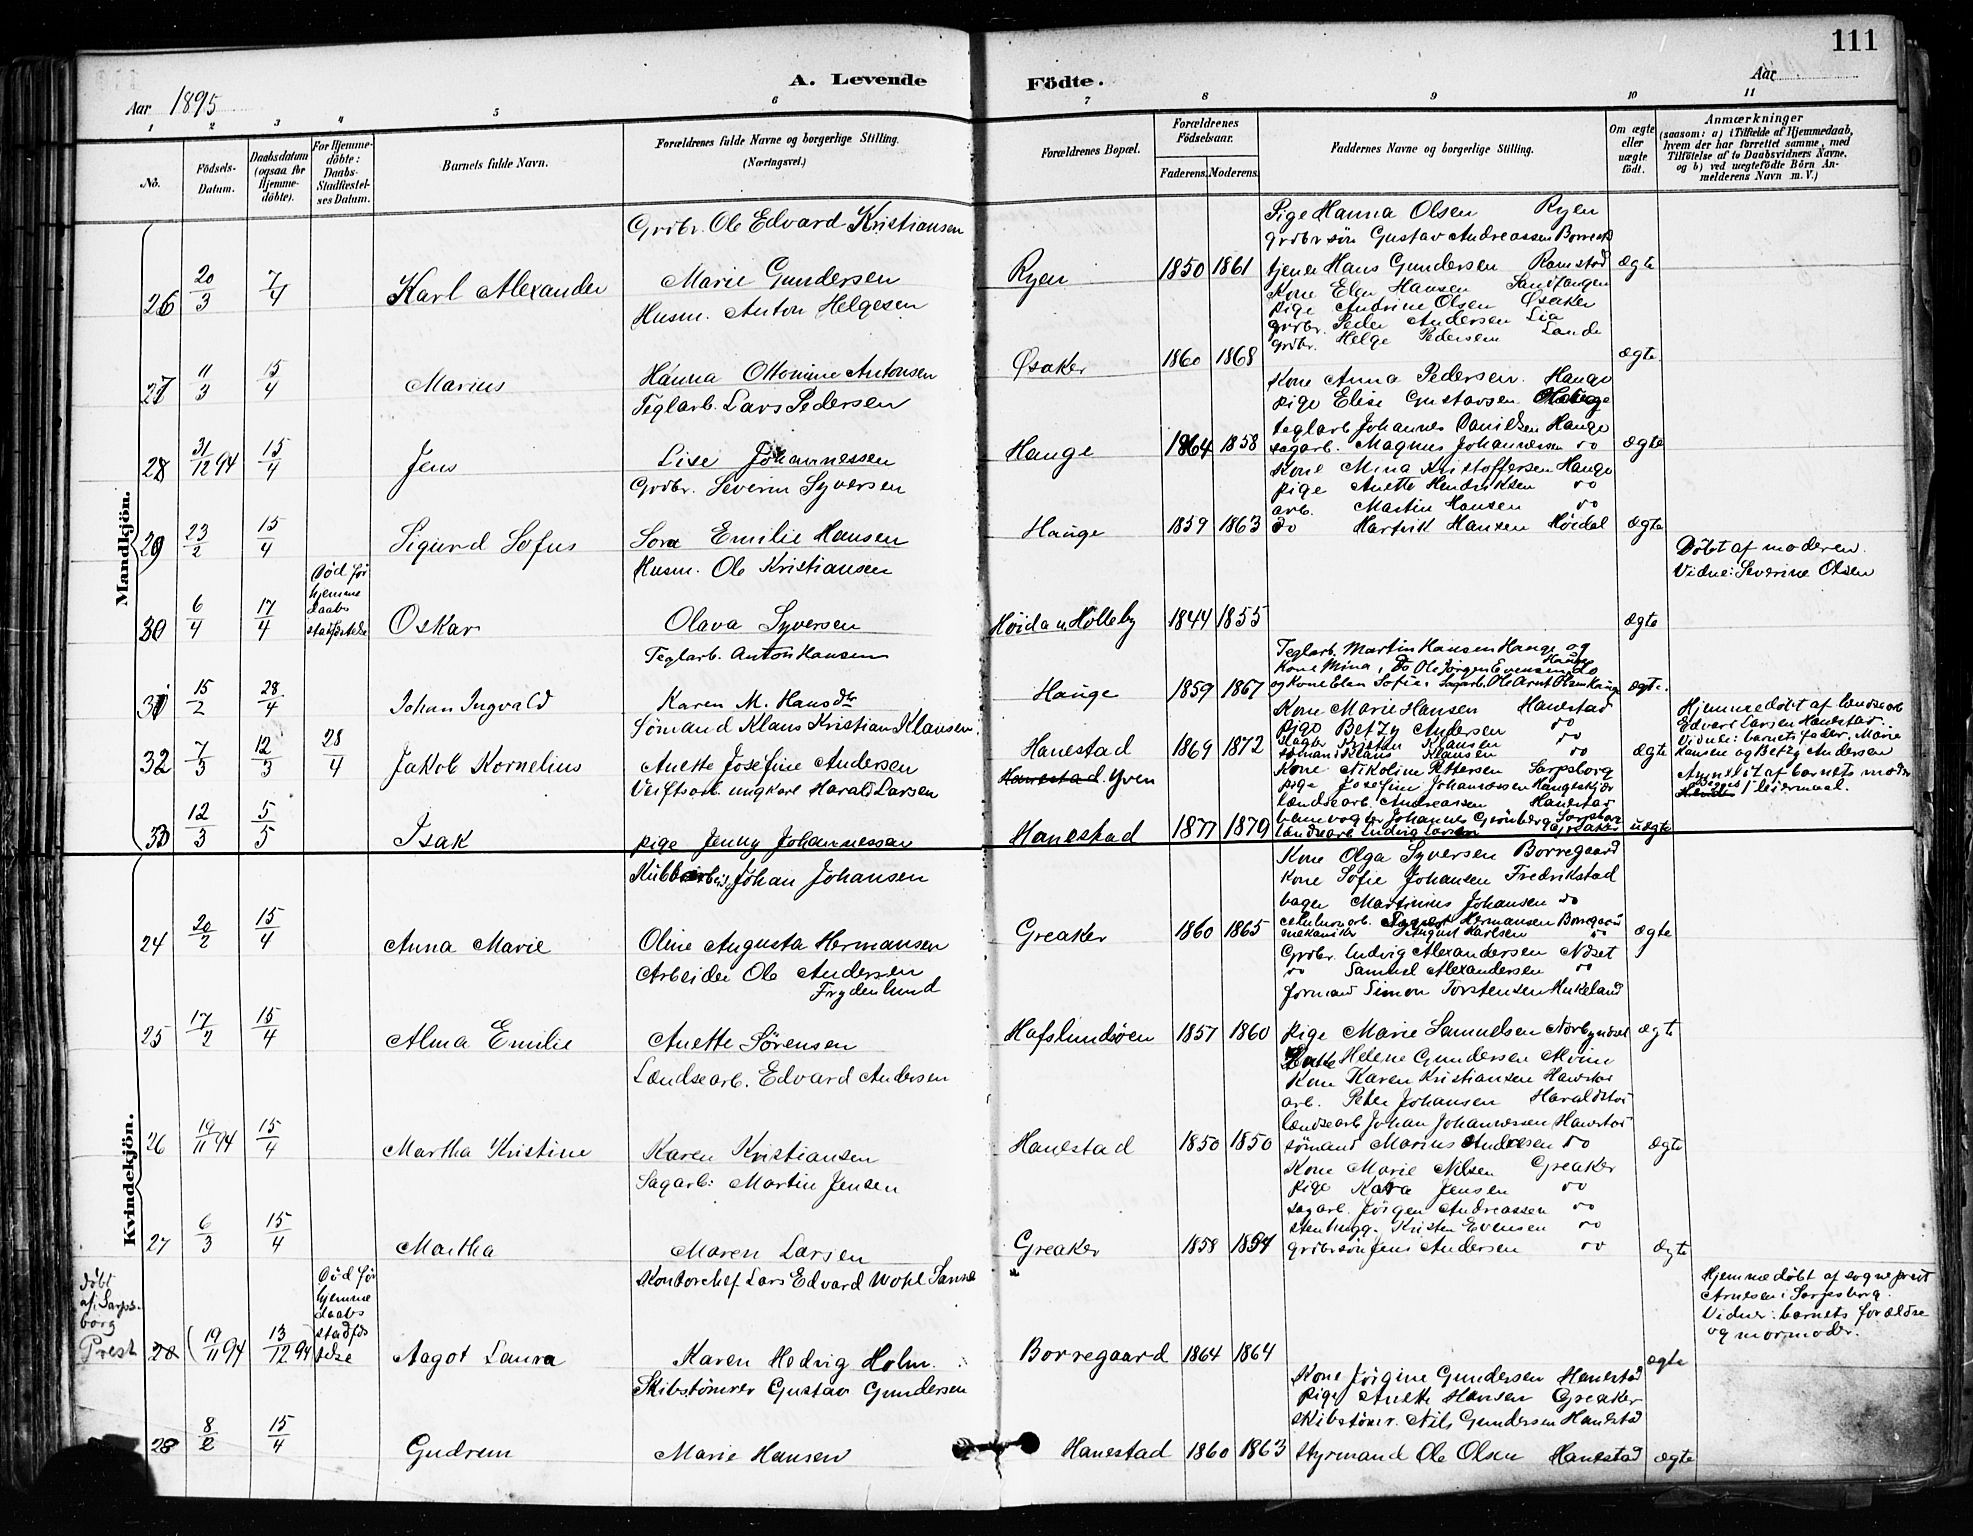 111
A. Levende Födte.
Aar 1895
Aar
1 2 3 4 5 6 7 8 9 10 11
No.
Födsels-Datum.
Daabsdatum (ogsaa for Hjemmedöbte).
For Hjemmedöbte: Daabs-Stadfæstelses Datum.
Barnets fulde Navn.
Forældrenes fulde Navne og borgerlige Stilling. (Næringsvei.)
Forældrenes Bopæl.
Forældrenes Födselsaar.
Faderens. Moderens.
Faddernes Navne og borgerlige Stilling.
Om ægte eller uægte födt.
Anmærkninger
(saasom: a) i Tilfælde af Hjemmedaab, hvem der har forrettet samme, med Tilföielse af to Daabsvidners Navne, og b) ved uægtefödte Börn Anmelderens Navn m. V.)
Mandkjön.
26 20/3 7/4 Karl Alexander
Grdbr. Ole Edvard Kristiansen
Marie Gundersen
Ryen 1850 1861
Pige Hanna Olsen Ryen
grdbr søn Gustav Andreassen
tjener Hans Gundersen Ramstad ægte
Kone Elen Hansen
pige Andrine Olsen Øsaker
grdbr. Peder Andersen Lia
grdbr. Helge Pedersen Lande
27 11/3 15/4 Marius
Husm. Anton Helgesen
Hanna Ottomine Antonsen
Øsaker 1860 1868 ægte
28 31/12 94 15/4 Jens
Teglarb. Lars Pedersen
Lise Johannessen
Hauge 1864 1858
Kone Anna Pedersen. Hauge
pige Elise Gustavsen
teglarb Johannes Danielsen Hauge
sagarb. Magnus Johannessen do ægte
29 23/2 15/4 Sigurd Sofus
Grdbr. Severin Syversen
Sora Emilie Hansen
Hauge 1859 1863
Kone Mina Kristoffersen Hauge
pige Anette Hendriksen do
arb. Martin Hansen do
do Hartvik Hansen Høidal ægte
30 6/4 17/4
Død før hjemme daabs stadfæstelse
Oskar
Husm. Ole Kristiansen
Olava Syversen
Høida u Holleby 1844 1855 ægte
Døbt af moderen.
Vidne: Severine Olsen
31 15/2 28/4 Johan Ingvald
Teglarb. Anton Hansen
Karen M. Hansdt
Hauge 1859 1867
Teglarb. Martin Hansen Hauge og
Kone Mina, Do Ole Jørgen Evensen Hauge
og Kone Elen Sofie, sagarb. Ole Arnt Olsen Hauge ægte.
32 7/3 12/3 28/4 Jakob Kornelius
Sømand Klaus Kristian Klausen
Anette Josefine Andersen
Hanestad 1869 1872
Kone Marie Hansen Hanestad
pige Betzy Andersen do
Kristen Klausen do
sømand Klaus Klausen do ægte
Hjemmedøbt af lændsearb
Edvard Larsen Hanestad.
Vidne: barnets fader, Marie
Hansen og Betzy Andersen
33 12/3 5/5 Isak
Verftsarb. ungkarl Harald Larsen
pige Jenny Johannessen
Hanestad. Yven
Hanestad 1877 1879
Kone Nikoline Pettersen Sarpsborg
pige Josefine Johannessen
lændsearb. Andreassen Hanestad
banevogter Johannes Grønberg Sarpsborg
lændsearb Ludvig Larsen Greaker uægte
Anmeldt af barnets moder
Begges 1 leiermaal.
Kvindekjön.
24 20/2 15/4 Anna Marie
Johan Johansen
Oline Augusta Hermansen
Greaker 1860 1865
Kone Olga Syversen Borregaard
Kone Sofie Johansen Fredrikstad
bager Martinius Johansen do
Hermansen Borregaard
mekaniker August Karlsen do ægte
25 17/2 15/4 Alma Emilie
Arbeider Ole Andersen
Frydenlund
Anette Sørensen
Hafslundsøen 1857 1860
Grdbr. Ludvig Alexandersen Næset
do Samuel Alexandersen do
formand Simon Torstensen
pige Marie Samuelsen ægt
Helene Gundersen Alvim
26 19/11 94 15/4 Martha Kristine
Lændsearb. Edvard Andersen
Karen Kristiansen
Hanestad 1850 1850
Kone Karen Kristiansen Hanestad
arb. Peter Johansen Haraldstad
lændsearb Johan Johannessen Hanestad
sømand Marius Andresen do ægte
27 6/3 15/4 Martha
Sagarb: Martin Jensen
Maren Larsen
Greaker 1858 1854
Kone Marie Nilsen Greaker
pige Kaia Jensen do
sagarb. Jørgen Andreassen do
stenhugg. Kristen Evensen do
grdbr søn Jens Andersen do ægte
døbt af: Sarpsborg Prest
28 19/11 94 13/12 94
Død før hjemme daabs stadfæstelse
Aagot Laura
Kontorchef Lars Edvard Wohl Sanne
Karen Hedvig Holm.
Borregaard 1864 1864 ægte
Hjemmedøbt af sogneprest
Arnesen i Sarpsborg.
Vidner: barnets forældre
og mormoder.
28 8/2 15/4 Gudrun
Skibstømrer Gustav Gundersen
Marie Hansen
Hanestad 1860 1863
Kone Jørgine Gundersen Hanestad
pige Anette Hansen Greaker
skibstømr. Nils Gundersen Hanestad
styrmand Ole Olsen Hanestad ægte